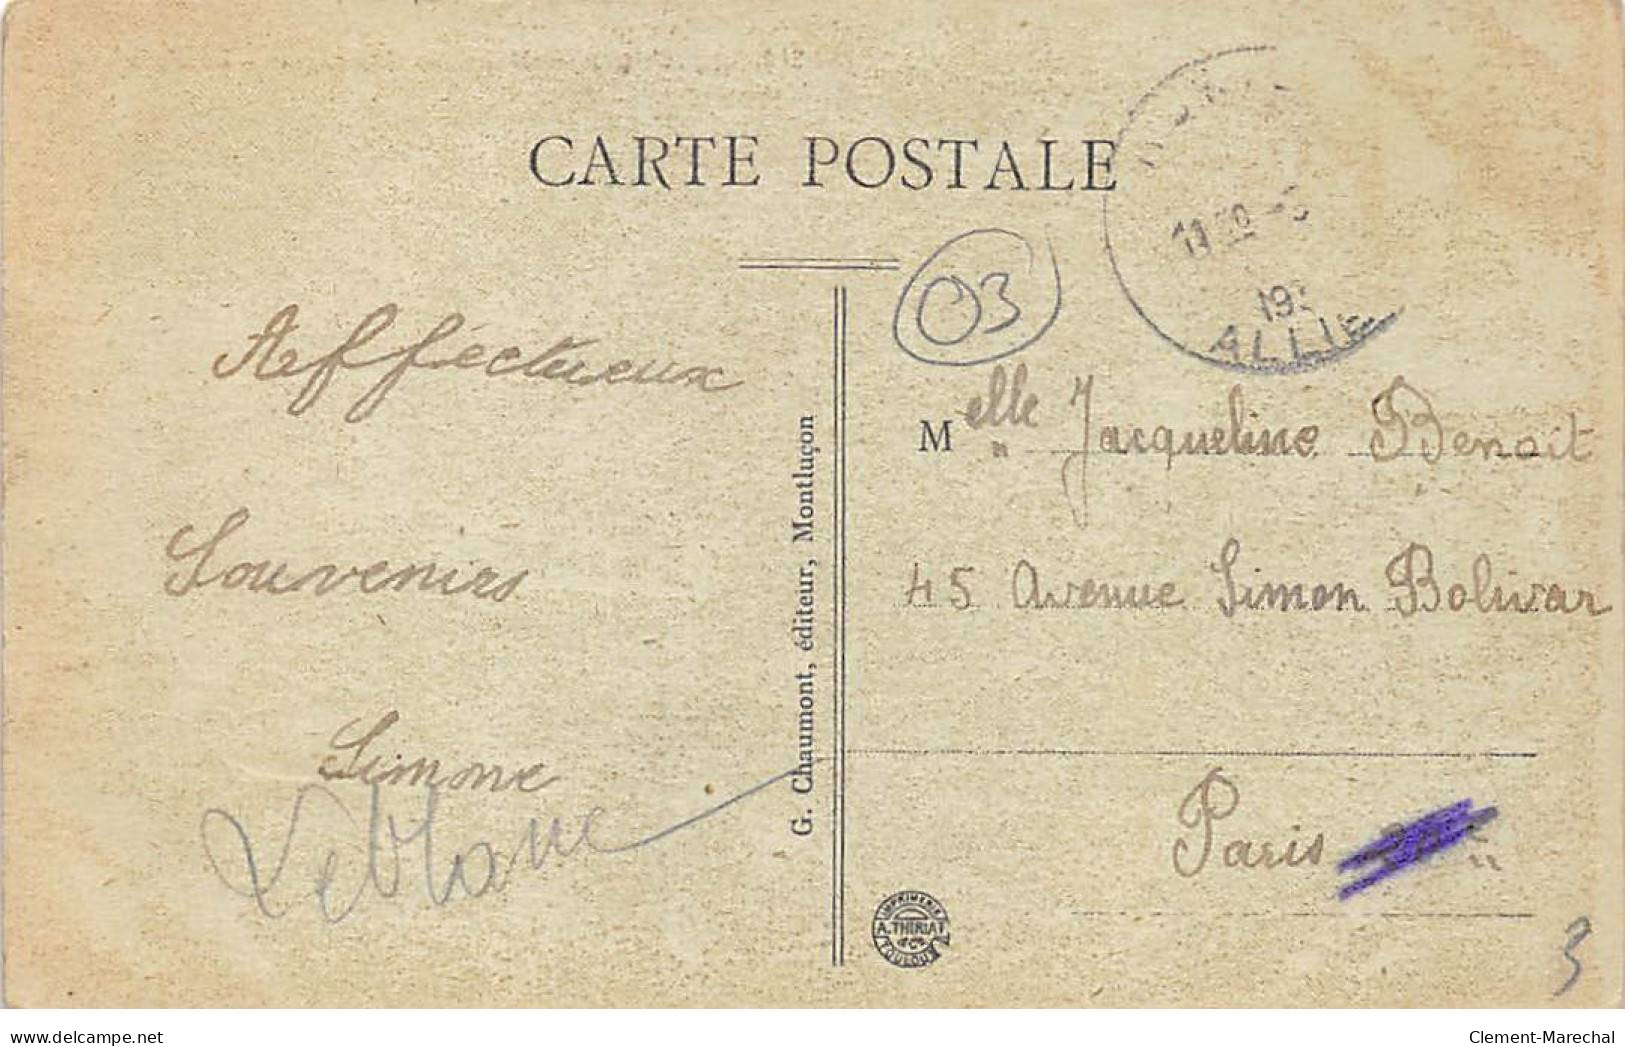 CARTE POSTALE
19
ALLIE
03
Affectueux
Souvenirs
Simone
Leblanc
G. Chaumont, éditeur, Montluçon
Melle Jacqueline Benoit
45 Avenue Simon Bolivar
Paris
IMPRIMERIE
A. THIRIAT
& Cie
TOULOUSE
3
www.delcampe.net
Clement-Marechal